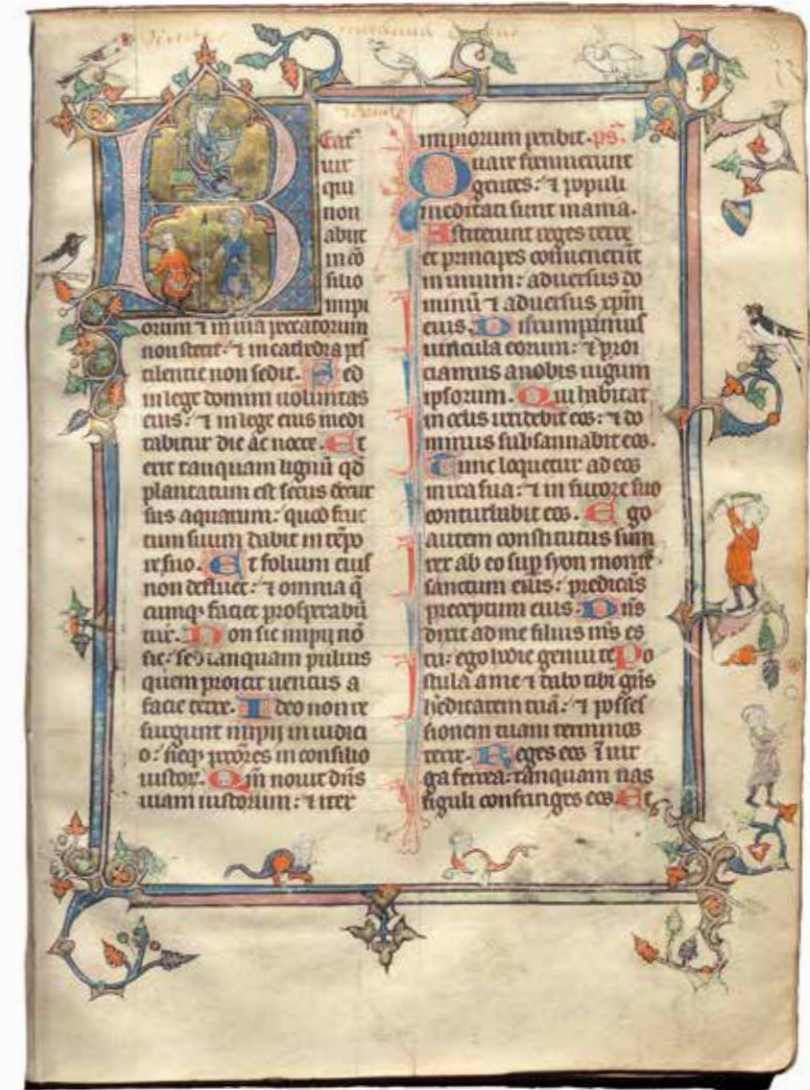 Beatꝰ
uir
qui
non
abijt
in cō
silio
impi
orum ⁊ in uia peccatorum
non stetit: ⁊ in cathedra pes
tilentie non sedit. Sed
in lege domini uoluntas
eius: ⁊ in lege eius medi
tabitur die ac nocte. Et
erit tanquam lignū qd̄
plantatum est secus decur
sus aquarum: quod fruc
tum suum dabit in tēpo
re suo. Et folium eius
non defluet: ⁊ omnia q̄
cumqꝫ faciet prosperabū
tur. Non sic impij nō
sic: sed tanquam puluis
quem proicit uentus a
facie terre. Ideo non re
surgunt impij in iudici
o: neqꝫ pctōres in consilio
iustoꝝ. Qm̄ nouit dn̄s
uiam iustorum: ⁊ iter
impiorum peribit. ps̄.
Quare fremuerunt
gentes: ⁊ populi
meditati sunt inania.
Astiterunt reges terre
et principes conuenerūt
in unum: aduersus do
minū ⁊ aduersus xp̄m
eius. Disrumpamus
uincula eorum: ⁊ proi
ciamus a nobis iugum
ipsorum. Qui habitat
in celis irridebit eos: ⁊ do
minus subsannabit eos.
Tunc loquetur ad eos
in ira sua: ⁊ in furore suo
conturbabit eos. Ego
autem constitutus sum
rex ab eo sup syon montē
sanctum eius: predicās
preceptum eius. Dn̄s
dixit ad me filius mēs es
tu: ego hodie genui te Po
stula a me ⁊ dabo tibi gn̄tes
hēditatem tuā: ⁊ posses
sionem tuam terminos
terre. Reges eos ī uir
ga ferrea: tanquam uas
figuli confringes eos Et